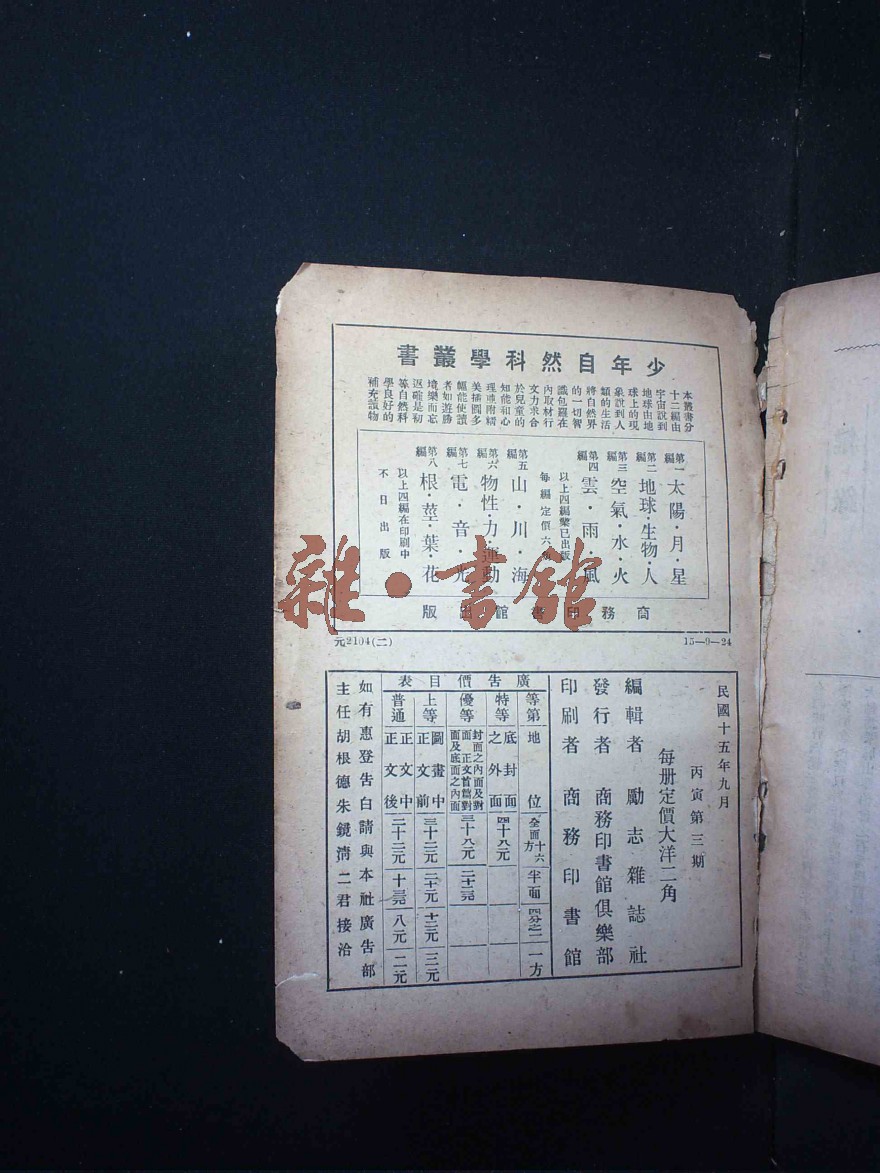 少年自然科學叢書
本叢書分
十二編由
宇宙說到
地球由地
球上的現
象說到人
類的生活
將自然界
的一切智
識包羅在
內取材行
文力求合
於兒童的
知能和心
理並附精
美插圖多
幅能使讀
者如遊勝
境樂而忘
返確是初
等自然科
學良好的
補充讀物
第一編 太陽・月・星
第二編 地球・生物・人
第三編 空氣・水・火
第四編 雲・雨・風
以上四編業已出版
每編定價六
第五編 山・川・海
第六編 物性・力・運動
第七編 電・音・光
第八編 根・莖・葉・花
以上四編在印刷中
不日出版
商務印書館出版
元2104(二)
15—9—24
民國十五年九月
丙寅第三期
每册定價大洋二角
編輯者 勵志雜誌社
發行者 商務印書館俱樂部
印刷者 商務印書館
廣告價目表
等第 地位 全面十六方 半面 四分之一 一方
特等 底封面之外面 四十八元
優等 封面之內面及對面正文首篇對面及底面之內面 三十八元
上等 圖畫中正文前 三十二元 二十元 十二元 三元
普通 正文中正文後 二十二元 八元 二元
如有惠登告白請與本社廣告部
主任胡根德朱鏡清二君接洽
雜・書館